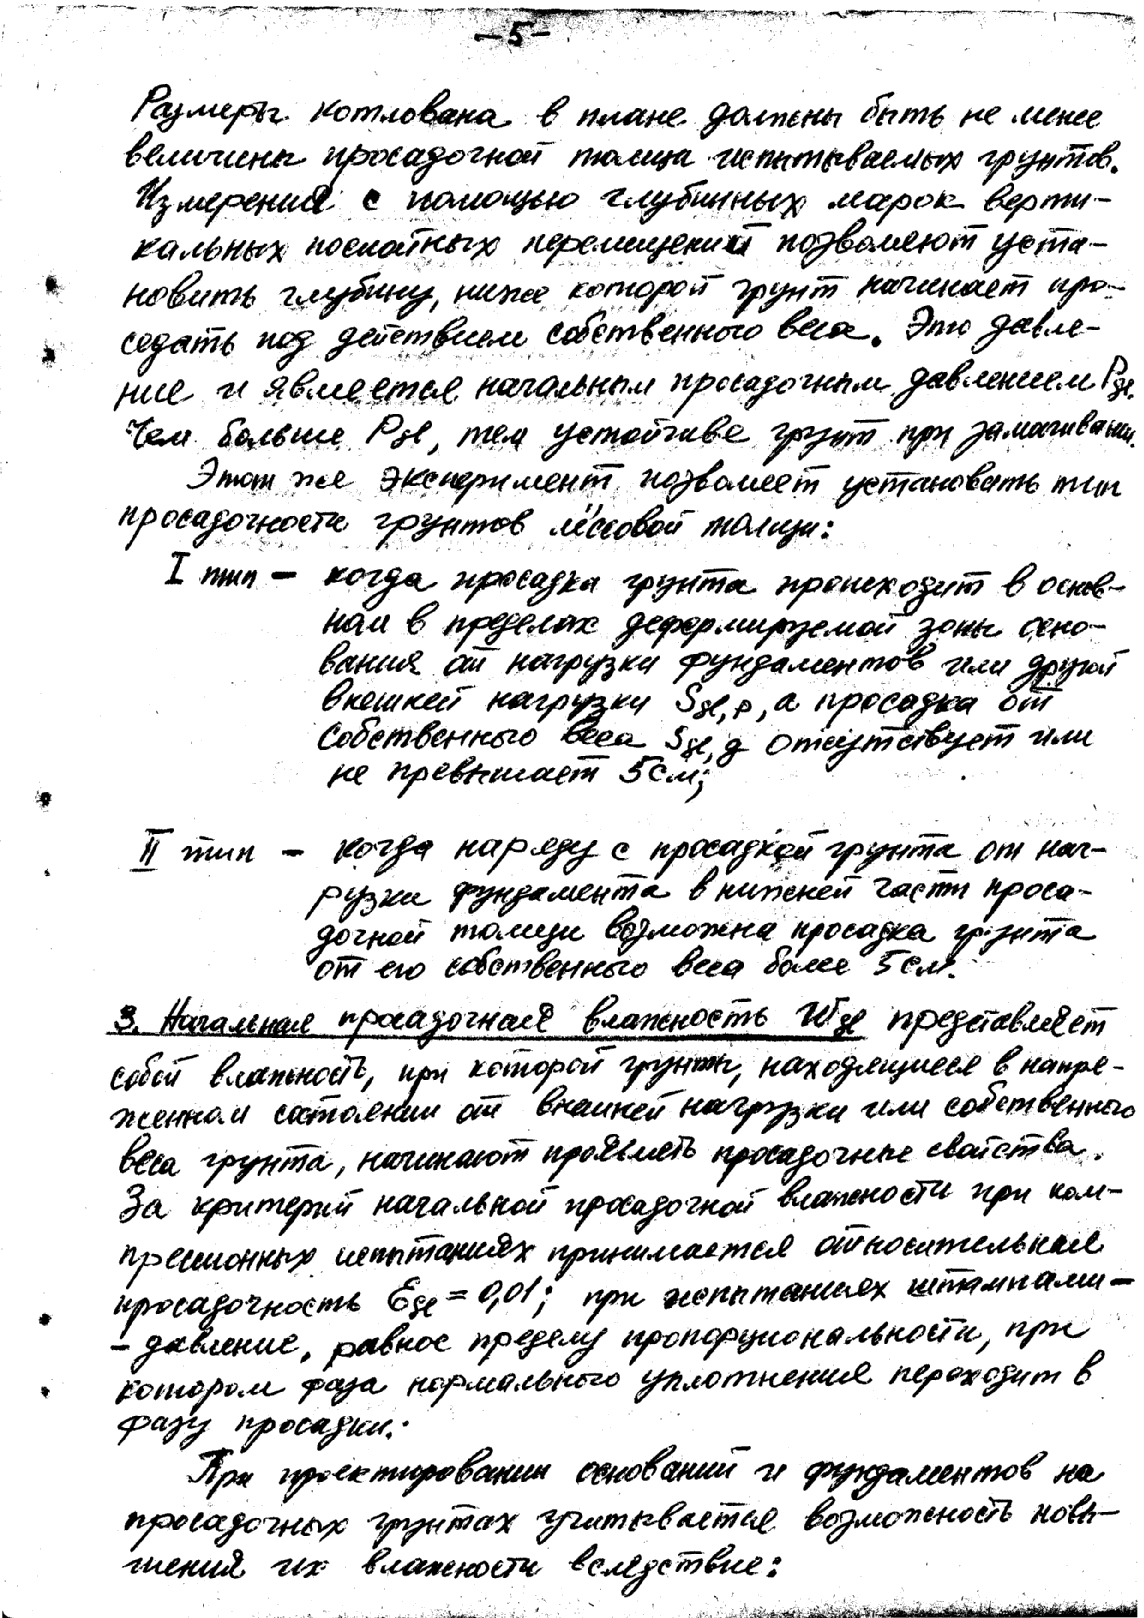 -5-
Размеры котлована в плане должны быть не менее
величины просадочной толщи испытываемых грунтов.
Измерения с помощью глубинных марок верти-
кальных послойных перемещений позволяют уста-
новить глубину, ниже которой грунт начинает про-
седать под действием собственного веса. Это давле-
ние и является начальным просадочным давлением Psl.
Чем больше Psl, тем устойчиве грунт при замачивании.
Этот же эксперимент позволяет установить тип
просадочности грунтов лёссовой толщи:
I тип - когда просадка грунта происходит в основ-
ном в пределах деформируемой зоны осно-
вания от нагрузки фундаментов или другой
внешней нагрузки Ssl,p, а просадка от
собственного веса Ssl,g отсутствует или
не превышает 5см;
II тип - когда наряду с просадкой грунта от наг-
рузки фундамента в нижней части проса-
дочной толщи возможна просадка грунта
от его собственного веса более 5см.
3. Начальная просадочная влажность Wsl представляет
собой влажность, при которой грунты, находящиеся в напря-
женном состоянии от внешней нагрузки или собственного
веса грунта, начинают проявлять просадочные свойства.
За критерий начальной просадочной влажности при ком-
прессионных испытаниях принимается относительная
просадочность Ɛsl = 0,01; при испытаниях штампами -
- давление, равное пределу пропорциональности, при
котором фаза нормального уплотнения переходит в
фазу просадки.
При проектировании оснований и фундаментов на
просадочных грунтах учитывается возможность повы-
шения их влажности вследствие: